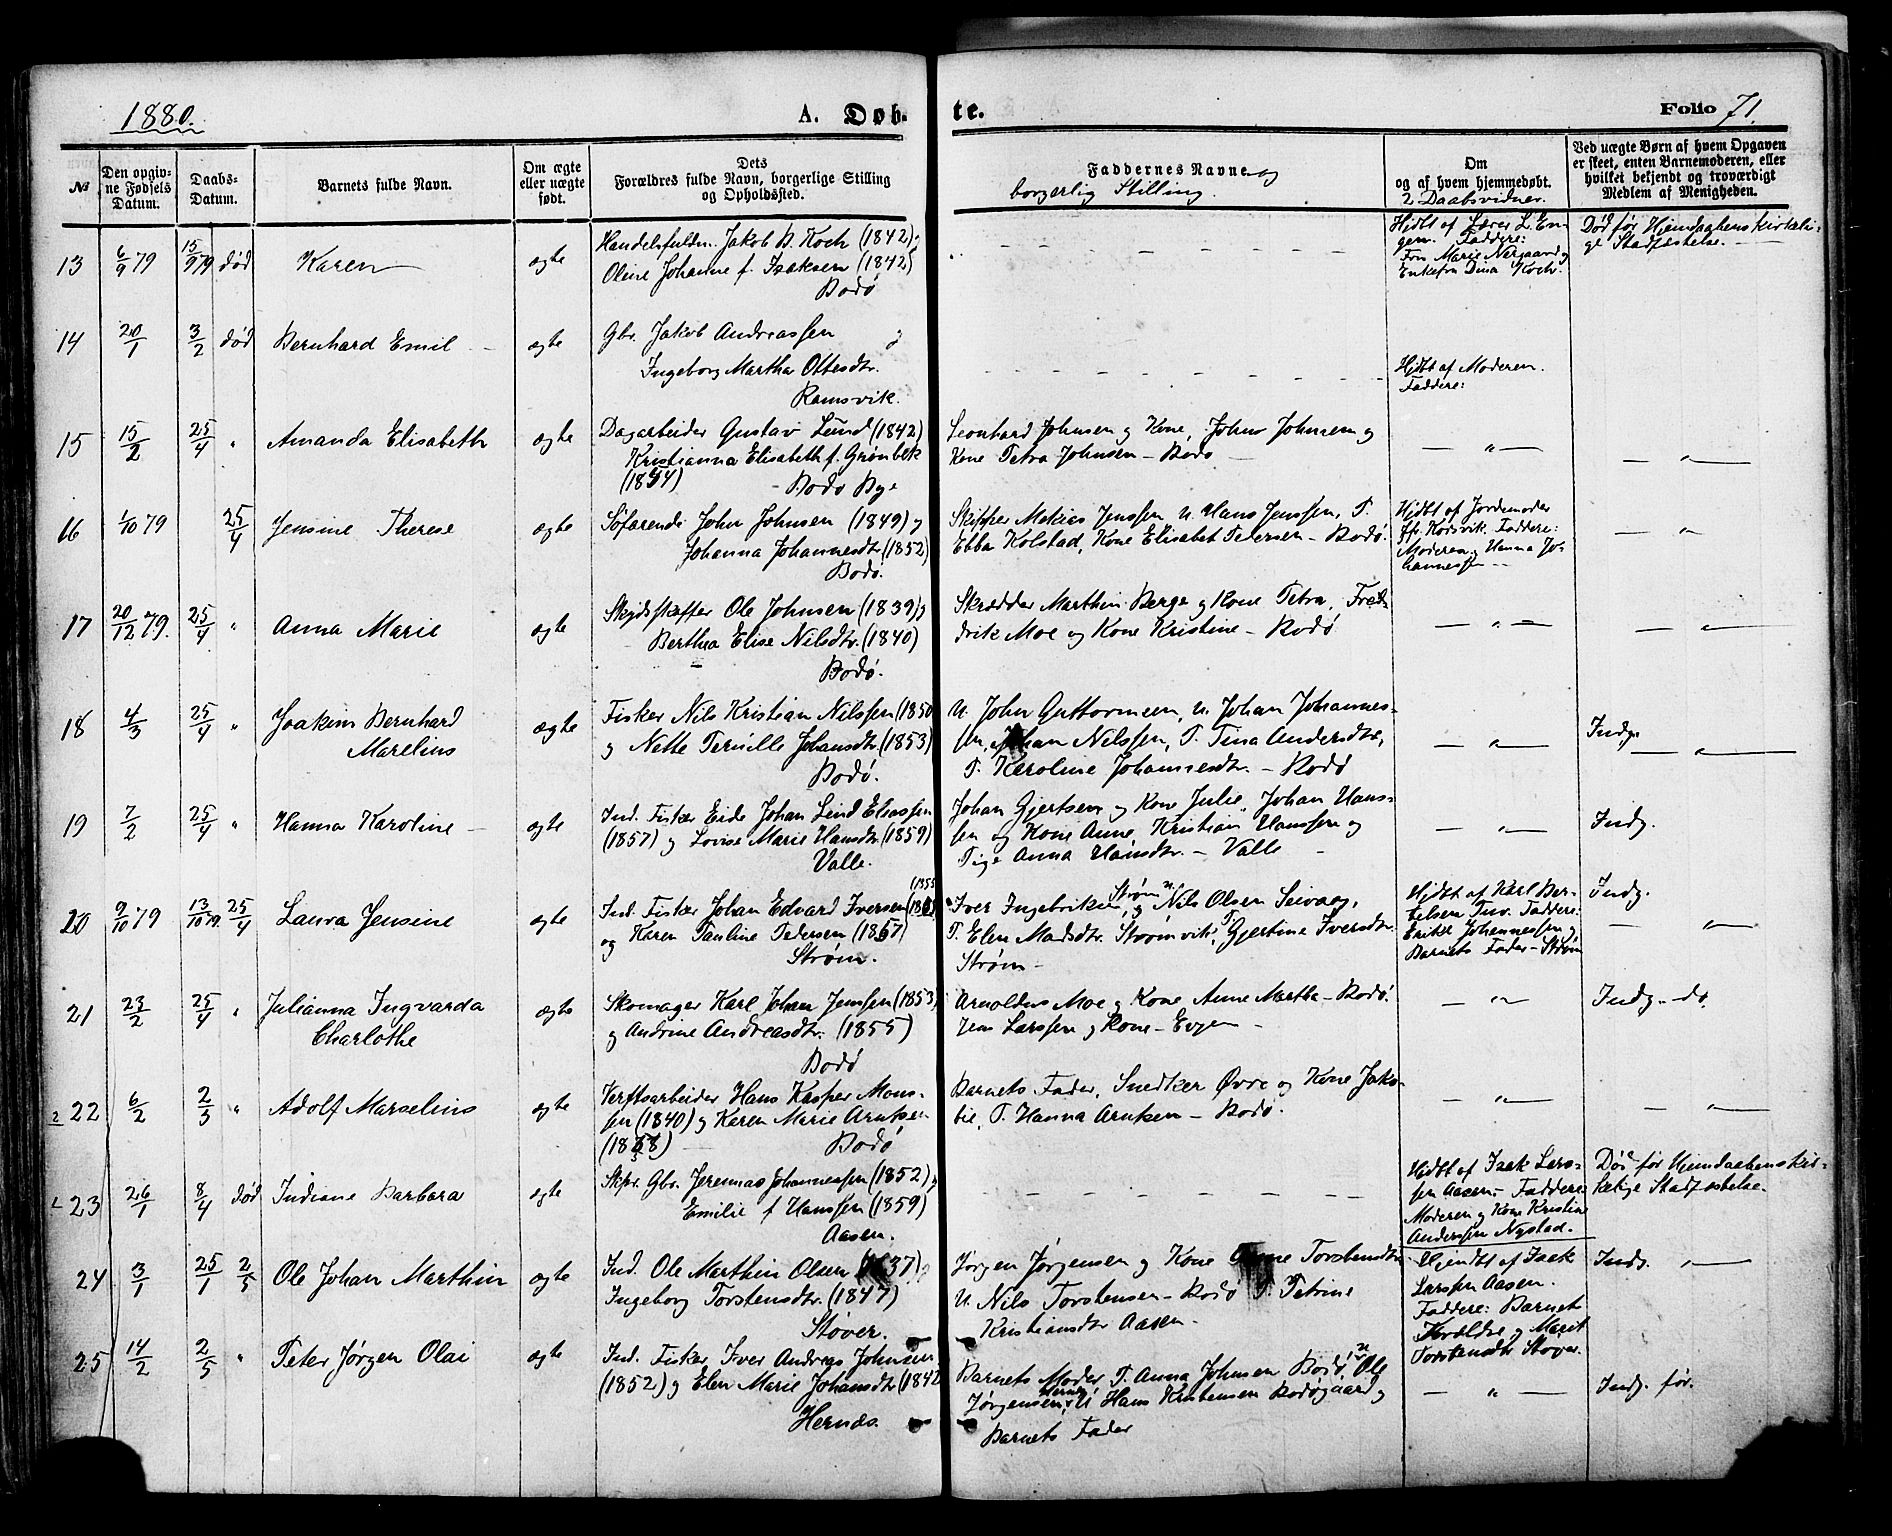 1880.
A. Døb-
te.
Folio 71.
№
Den opgiv-
ne Fødsels
Datum.
Daabs-
Datum.
Barnets fulde Navn.
Om ægte
eller uægte
født.
Dets
Forældres fulde Navn, borgerlige Stilling
og Opholdssted.
Faddernes Navne og
borgerlig Stilling.
Om
og af hvem hjemmedøbt.
2 Daabsvidner.
Ved uægte Børn af hvem Opgaven
er skeet, enten Barnemoderen, eller
hvilket bekjendt og troværdigt
Medlem af Menigheden.
13 6/9 79 15/9 79 død Karen ægte
Handelsfuldm. Jakob B. Koch (1842) og
Oline Johanne f. Isaksen (1842)
Bodø
Hjdbt af Lærer L. En-
gen. Faddere:
Frn Marie Nørgaard og
Enkefru Dina Koch.
Død før Hjemdaabens kirkeli-
ge Stadfæstelse.
14 20/1 3/2 død Bernhard Emil ægte
Gbr. Jakob Andreassen og
Ingeborg Martha Ottesdtr.
Ramsvik.
Hjdbt af Moderen.
Faddere:
15 15/2 25/4 " Amanda Elisabeth ægte
Dagarbeider Gustav Lund (1842)
Kristianna Elisabeth f. Grønbek
(1854) - Bodø Bye
Leonhard Johnsen og Kone, Johns Johnsen og
Kone Petra Johnsen - Bodø
16 1/10 79 25/4 Jensine Therese ægte
Søfarende John Johnsen (1849) og
Johanna Johannesdtr (1852)
Bodø.
Skipper Mekias Jenssen, U. Hans Jenssen, P.
Ebba Kolstad, Kone Elisabet Pedersen - Bodø.
Hjdbt af Jordemoder
Kodsvik. Faddere:
Moderen og Hanna Jo-
hannessen
17 20/12 79. 25/4 " Anna Marie ægte
Skydsskaffer Ole Johnsen (1839) og
Berthea Elise Nilsdtr. (1840)
Bodø.
Skrædder Marthin Berge og Kone Petra, Fred-
drik Moe og Kone Kristine - Bodø
18 4/3 25/4 " Joakim Bernhard
Marelius ægte
Fisker Nils Kristian Nilssen (1850
og Nette Pernille Johansdtr. (1853)
Bodø.
U. John Guttormsen, U. Johan Johannes-
sen, Johan Nilssen, P. Tina Andersdtr,
P. Karoline Johannesdtr. - Bodø
Indg.
19 7/2 25/4 " Hanna Karoline ægte
Ind. Fisker Eide Johan Lind Eliassen
(1857) og Lovise Marie Hansdtr. (1859)
Valle.
Johan Gjertsen og Kone Julie, Johan Hans-
sen og Kone Anne, Kristian Hanssen og
Pige Anna Hansdtr. - Valle
Indg.
20 9/10 79 13/10 79. 25/4 Laura Jensine ægte
Ind. Fisker Johan Edvard Iversen (1855
og Karen Pauline Pedersen (1857)
Strøm.
Iver Ingebriktsen Strøm, og U. Nils Olsen Seivaag,
P. Elen Madsdtr. Strømvik, P. Gjertine Iversdtr
Strøm -
Hjdbt af Karl Ber-
telsen Tuv. Faddere:
Erikke Johannessen og
Barnets Fader - Strøm
Indg.
21 23/2 25/4 " Julianna Ingvarda
Charlothe ægte
Skomager Karl Johan Jenssen (1853)
og Andrine Andreasdtr. (1855)
Bodø
Arnoldus Moe og Kone Anne Martha - Bodø.
Jens Larssen og Kone - Evjen -
Indg. do.
22 6/2 2/5 " Adolf Marselius ægte
Verftsarbeider Hans Kasper Mons-
sen (1840) og Karen Marie Arntsen
(1858) Bodø
Barnets Fader, Snedker Øvre og Kone Jako-
bie, P. Hanna Arntsen - Bodø.
23 26/1 8/4 død Indiane Barbara ægte
Skpr. Gbr. Jeremias Johannessen (1852) og
Emilie f Hanssen (1859)
Aasen.
Hjdbt af Isak Lars-
sen Aasen. Faddere
Moderen og Kone Kristine
Anderssen Nystad.
Død før Hjemdaabens kir-
kelige Stadfæstelse.
24 3/1 25/1 2/5 Ole Johan Marthin ægte
Ind. Ole Marthin Olsen (1837) og
Ingeborg Torstensdtr. (1847)
Støver.
Jørgen Jørgensen og Kone Anne Torstensdtr
U. Nils Torstensen - Bodø P. Petrine
Kristiansdtr Aasen.
Hjemdbt af Isak
Larssen Aasen.
Faddere: Barnets
Forældre og Marit
Torstensdtr Støver.
Indg.
25 14/2 2/5 " Peter Jørgen Olai ægte
Ind. Fisker, Iver Andreas Johnsen
(1852) og Elen Marie Johansdtr (1842
Hernes.
Barnets Moder, P. Anna Johnsen Bodø, U Ole
Jørgensen Hernes, U Hans Kristensen Bodøgaard og
Barnets Fader
Indg. før.